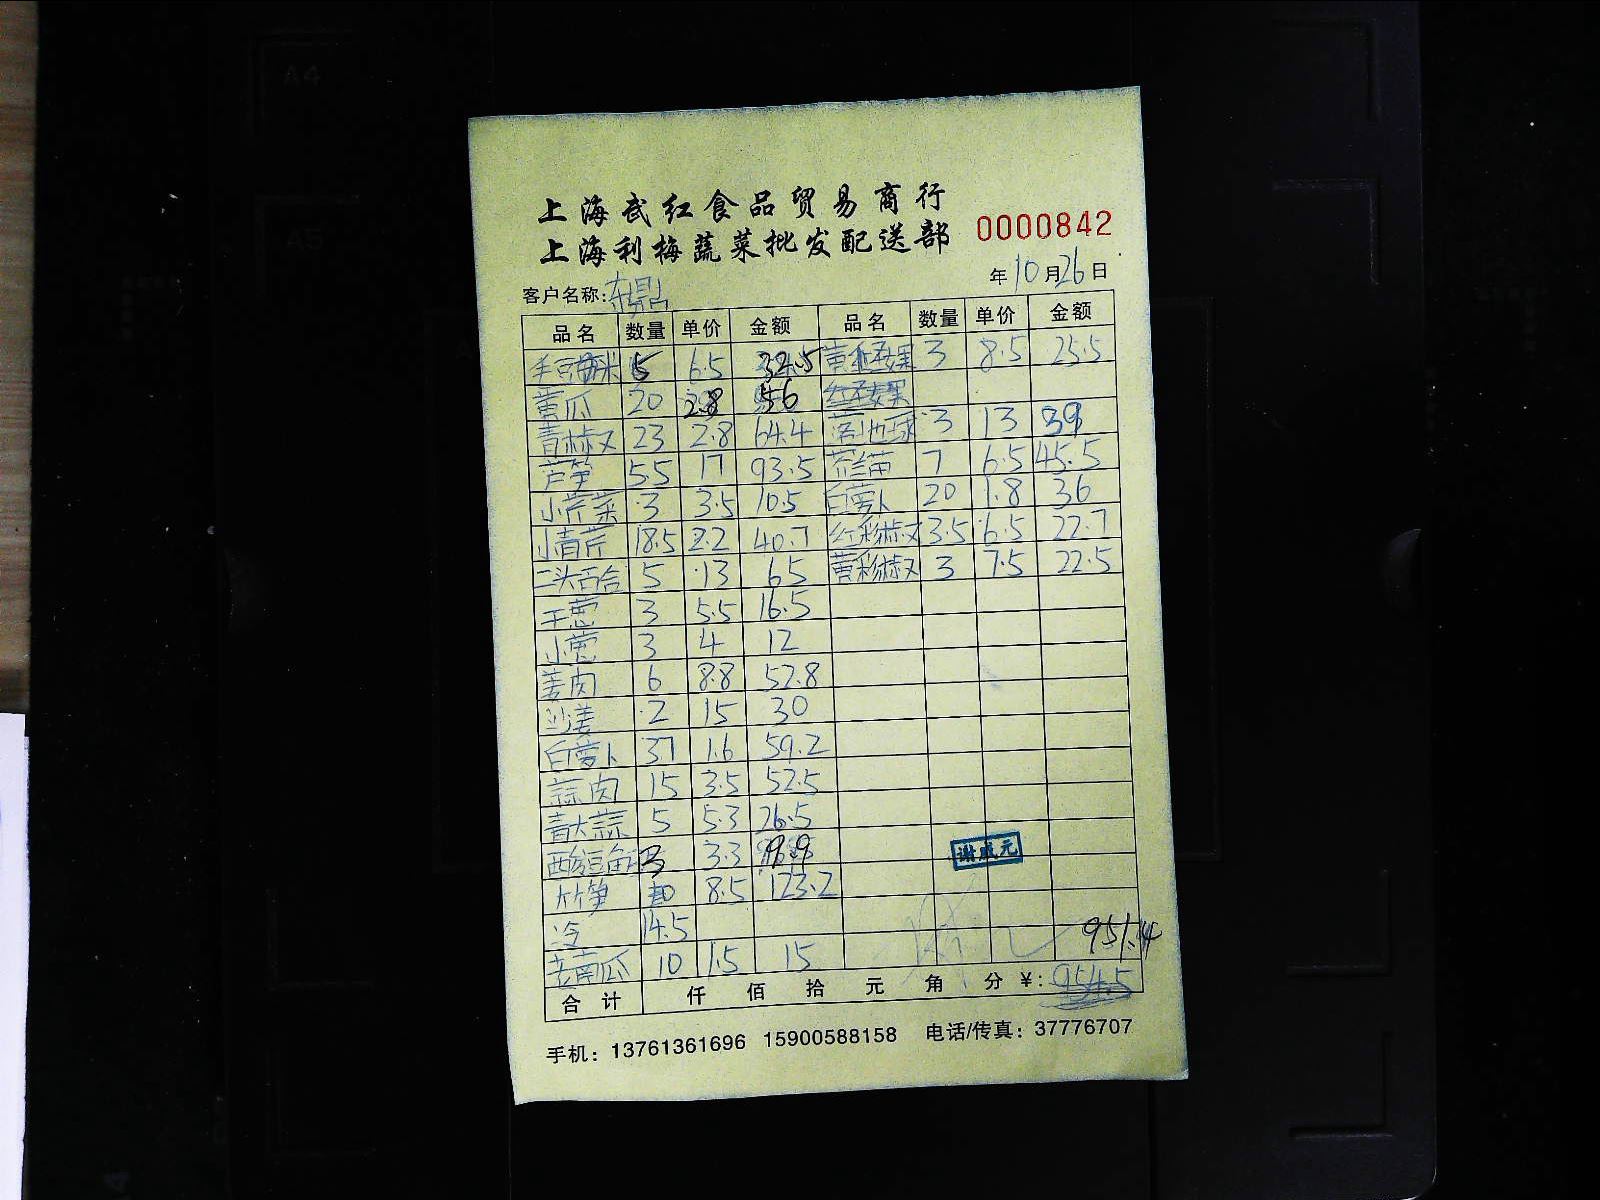 上海武红食品贸易商行
上海利梅蔬菜批发配送部
0000842
年10月26日
客户名称:东鼎
品名 数量 单价 金额 品名 数量 单价 金额
毛豆 5 6.5 32.5 3 8.5 25.5
黄瓜 20 2.8 56
青椒 23 2.8 64.4 3 13 39
芦笋 5.5 17 93.5 芥兰苗 7 6.5 45.5
小芹菜 3 3.5 10.5 白萝卜 20 1.8 36
小青芹 18.5 2.2 40.7 红彩椒 3.5 6.5 22.7
二头百合 5 13 65 黄彩椒 3 7.5 22.5
干葱 3 5.5 16.5
小葱 3 4 12
姜肉 6 8.8 52.8
沙姜 2 15 30
白萝卜 37 1.6 59.2
蒜肉 15 3.5 52.5
青大蒜 5 5.3 26.5
酸豆角 3 3.3 9.9
竹笋 8.5 123.2
冷 14.5
老南瓜 10 1.5 15
谢成元
951.4
合计 仟 佰 拾 元 角 分 ¥: 954.5
手机: 13761361696 15900588158 电话/传真: 37776707